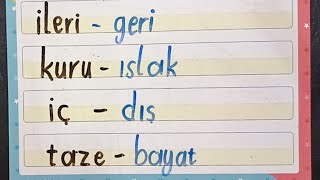 ileri - geri
kuru - ıslak
iç - dış
taze - bayat